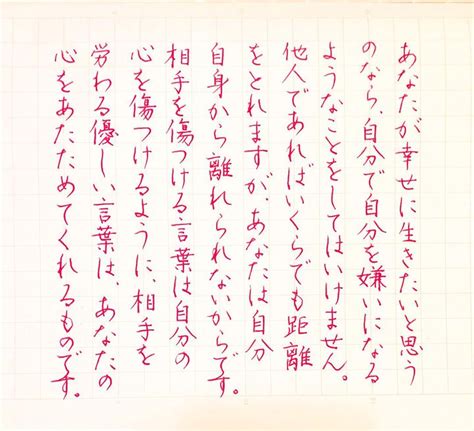 あなたが幸せに生きたいと思う
のなら、自分で自分を嫌いになる
ようなことをしてはいけません。
他人であればいくらでも距離
をとれますが、あなたは自分
自身から離れられないからです。
相手を傷つける言葉は自分の
心を傷つけるように、相手を
労わる優しい言葉は、あなたの
心をあたためてくれるものです。